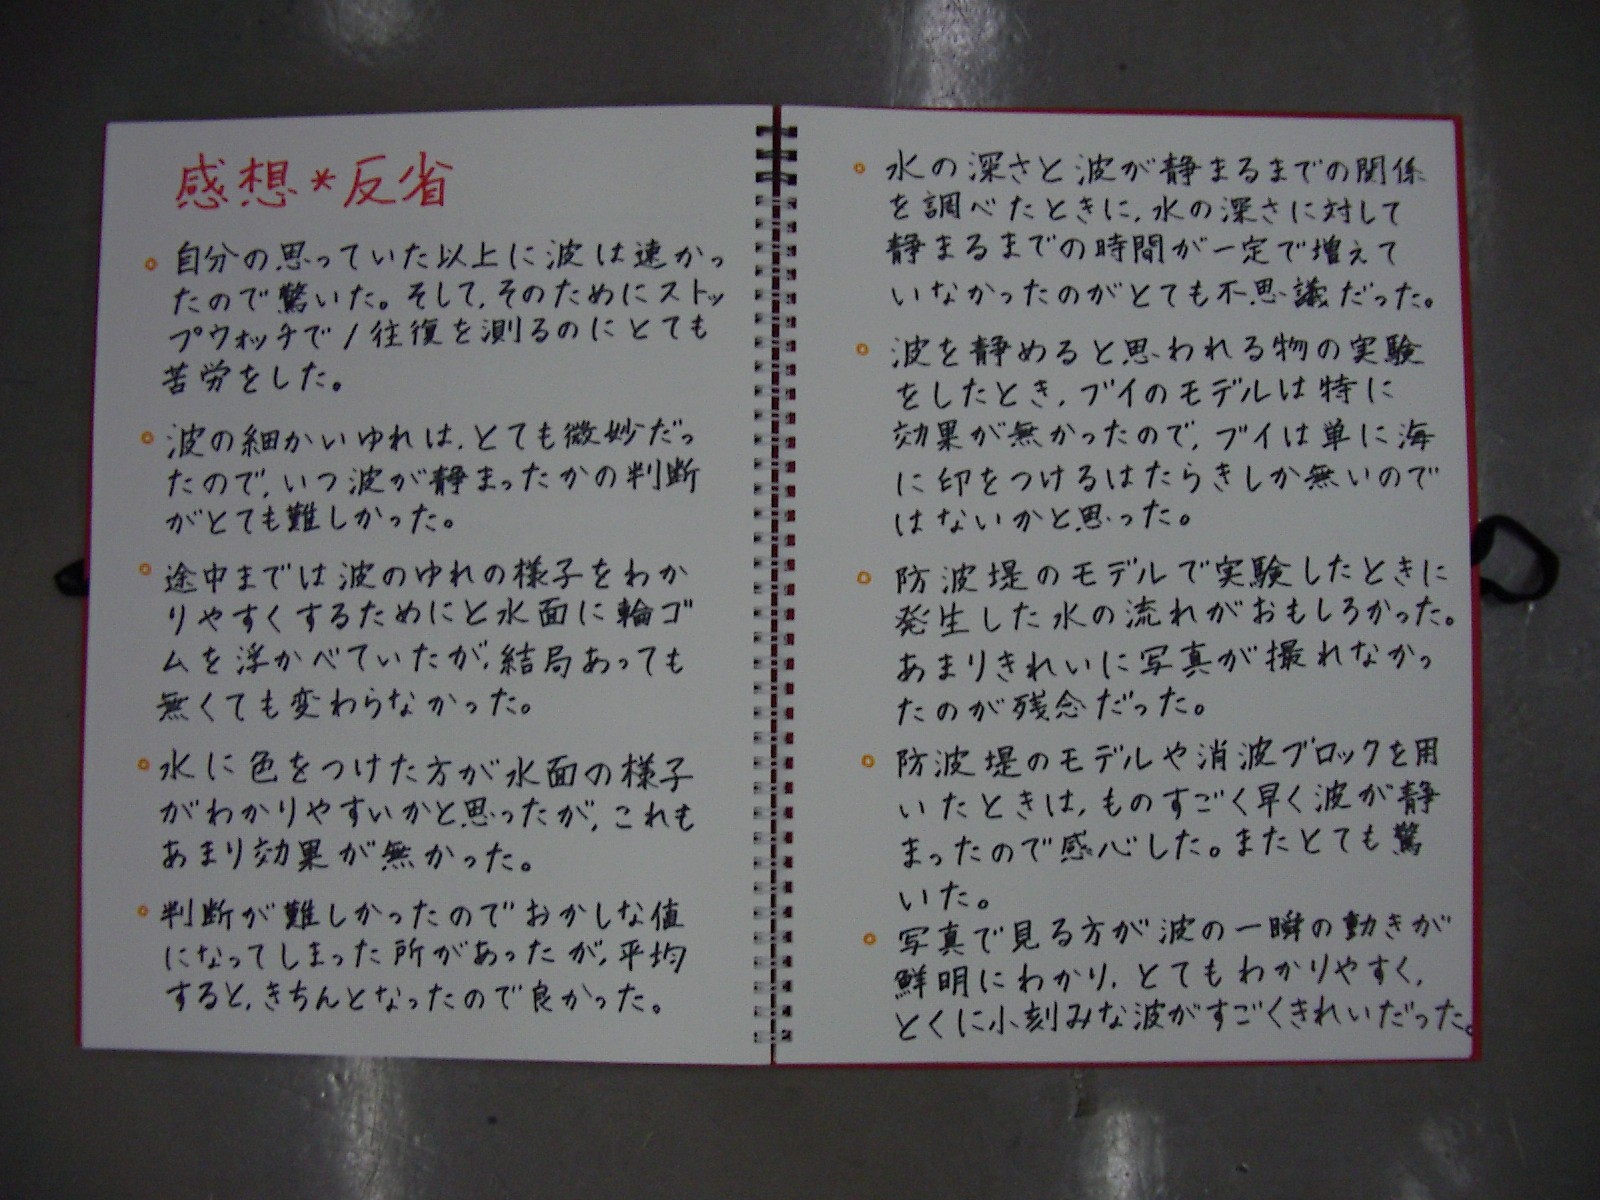 感想*反省
自分の思っていた以上に波は速かっ
たので驚いた。そして、そのためにストッ
プウォッチで1往復を測るのにとても
苦労をした。
波の細かいゆれは、とても微妙だっ
たので、いつ波が静まったかの判断
がとても難しかった。
途中までは波のゆれの様子をわか
りやすくするためにと水面に輪ゴ
ムを浮かべていたが、結局あっても
無くても変わらなかった。
水に色をつけた方が水面の様子
がわかりやすいかと思ったが、これも
あまり効果が無かった。
判断が難しかったのでおかしな値
になってしまった所があったが、平均
すると、きちんとなったので良かった。
水の深さと波が静まるまでの関係
を調べたときに、水の深さに対して
静まるまでの時間が一定で増えて
いなかったのがとても不思議だった。
波を静めると思われる物の実験
をしたとき、ブイのモデルは特に
効果が無かったので、ブイは単に海
に印をつけるはたらきしか無いので
はないかと思った。
防波堤のモデルで実験したときに
発生した水の流れがおもしろかった。
あまりきれいに写真が撮れなかっ
たのが残念だった。
防波堤のモデルや消波ブロックを用
いたときは、ものすごく早く波が静
まったので感心した。またとても驚
いた。
写真で見る方が波の一瞬の動きが
鮮明にわかり、とてもわかりやすく、
とくに小刻みな波がすごくきれいだった。